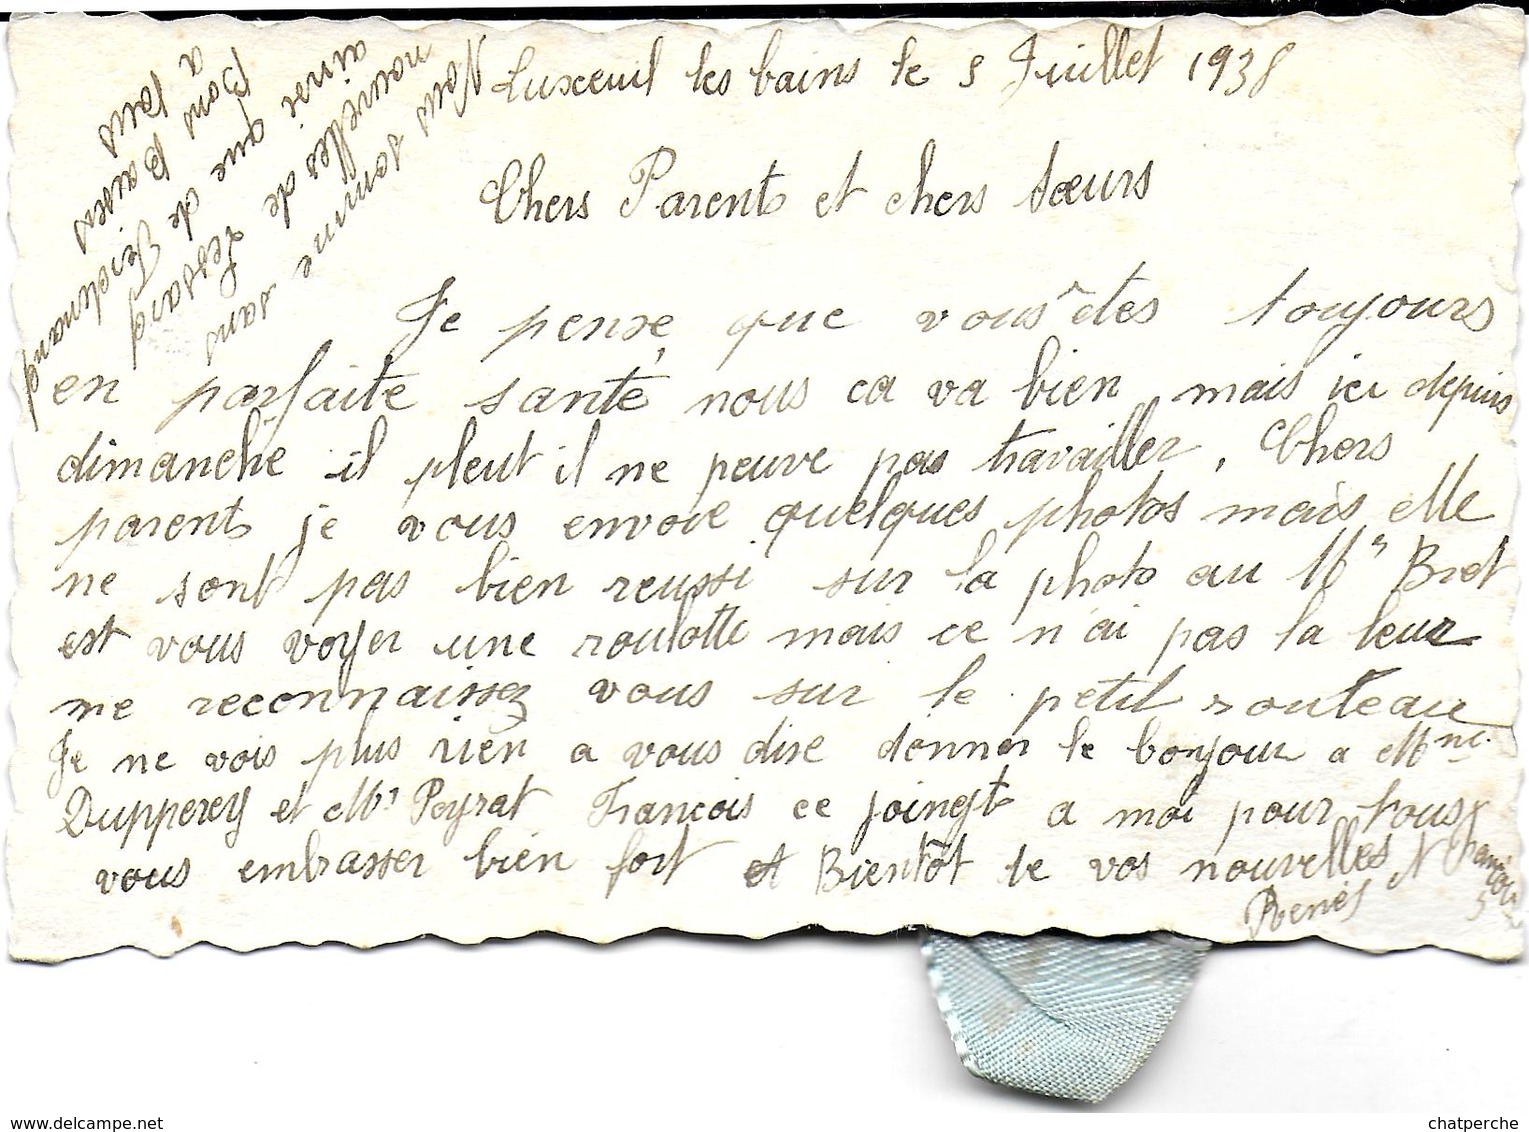 Luxeuil les bains le 5 Juillet 1938
Chers Parents et chers sœurs
Je pense que vous êtes toujours
en parfaite santé nous ca va bien, mais ici depuis
dimanche il pleut il ne peuve pas travailler, Chers
parents je vous envoie quelques photos mais elle
ne sont pas bien reussi sur la photo au Mr Bret
est vous voyer une roulotte mais ce n'ai pas la leur
me reconnaissez vous sur le petit routeau
Je ne vois plus rien a vous dire donner le bonjour a Mme
Dupperey et Mr Peyrat François ce joingt a moi pour tous
vous embrasser bien fort et Bientôt de vos nouvelles
Renés et François
Nous somme sans
nouvelles de Lessard
ainsi que de Ferdinand
Bons Baisers
a tous
www.delcampe.net
chatperche